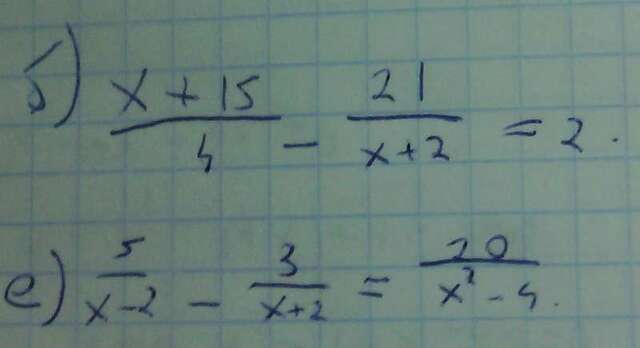 б) (x + 15)/4 - 21/(x + 2) = 2.
e) 5/(x - 2) - 3/(x + 2) = 20/(x² - 4).